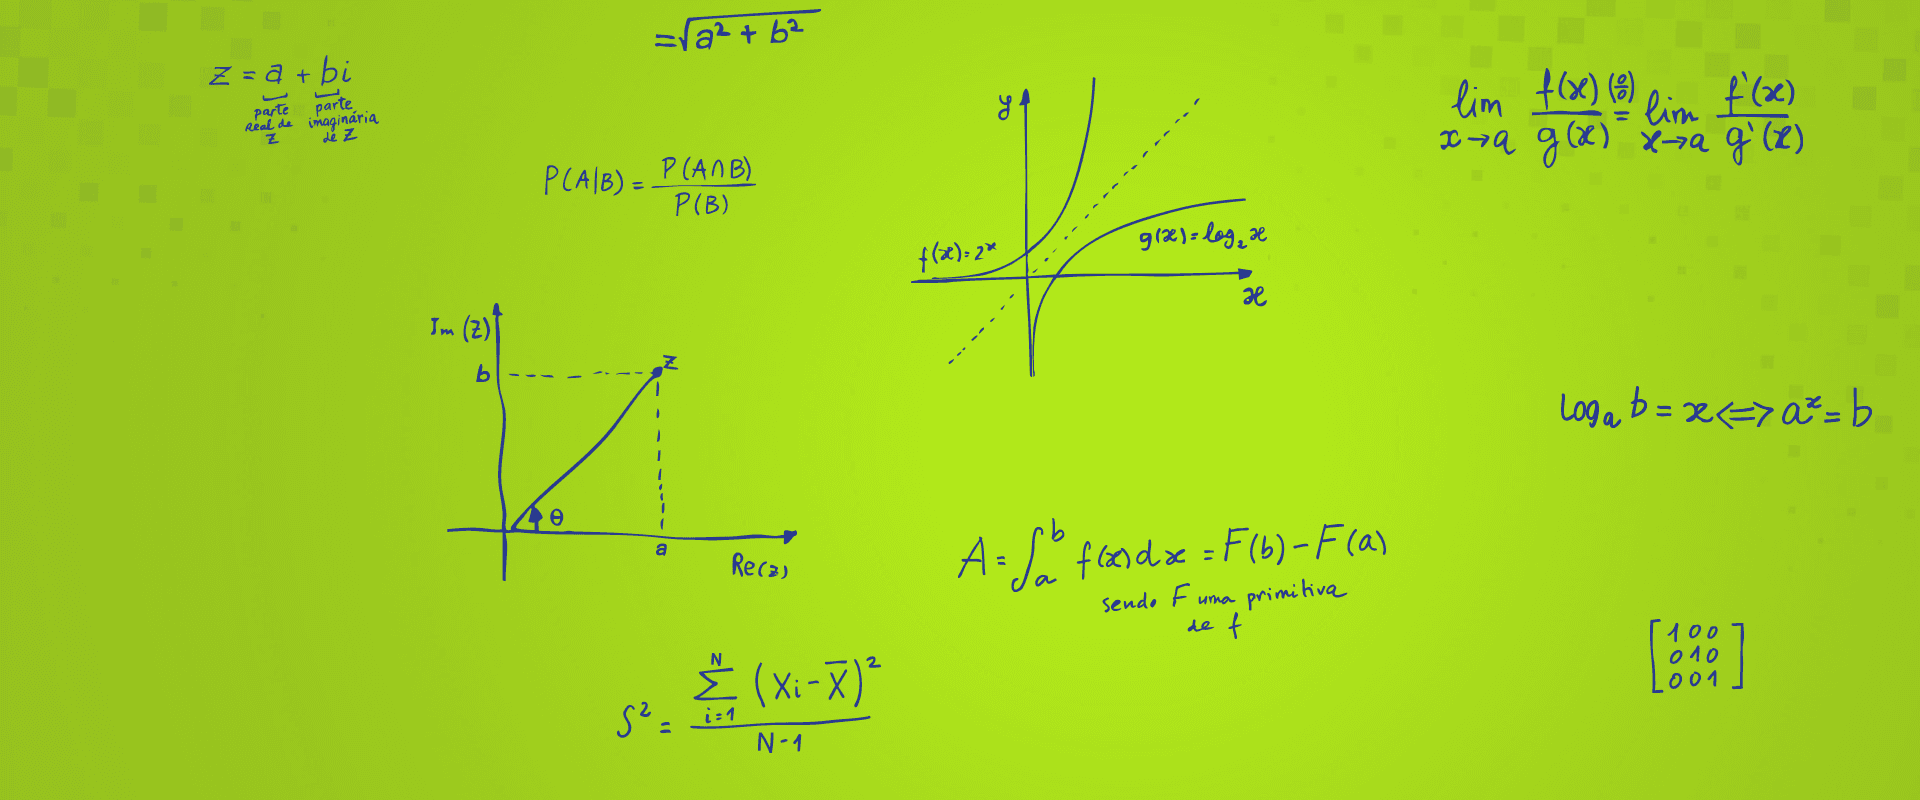 = √(a² + b²)
z = a + bi
parte real de z
parte imaginária de z
P(A|B) = P(A∩B) / P(B)
y
f(x) = 2ˣ
g(x) = log₂ x
x
lim x→a f(x) / g(x) (0/0) = lim x→a f'(x) / g'(x)
Im (z)
b
z
θ
a
Re(z)
logₐ b = x <=> aˣ = b
A = ∫ₐᵇ f(x) dx = F(b) - F(a)
sendo F uma primitiva
de f
S² = ∑ᵢ₌₁ᴺ (Xi - X̅)² / N - 1
1 0 0
0 1 0
0 0 1